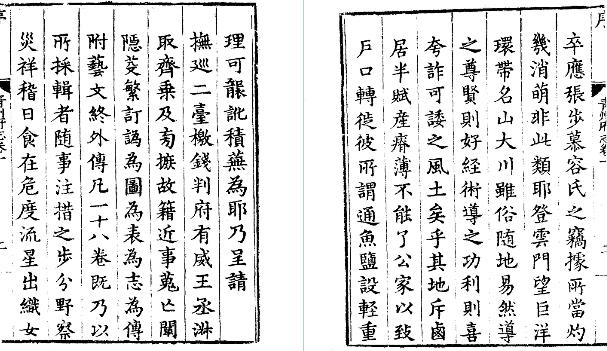 卒應張步慕容氏之竊據所當灼
幾消萌非此類耶登雲門望巨洋
環帶名山大川雖俗隨地易然導
之尊賢則好經術導之功利則喜
夸詐可諉之風土矣乎其地斥鹵
居半賦産瘠薄不能了公家以致
戶口轉徙彼所謂通魚鹽設輕重
理可龎訛積蕪為耶乃呈請
撫巡二臺檄錢判府有威王丞
取齊乘及旁摭故籍近事蒐亡闡
隱芟繁訂譌為圖為表為志為傳
附藝文終外傳凡一十八卷既乃以
所採輯者随事注措之步分野察
災祥稽日食在危度流星出織女